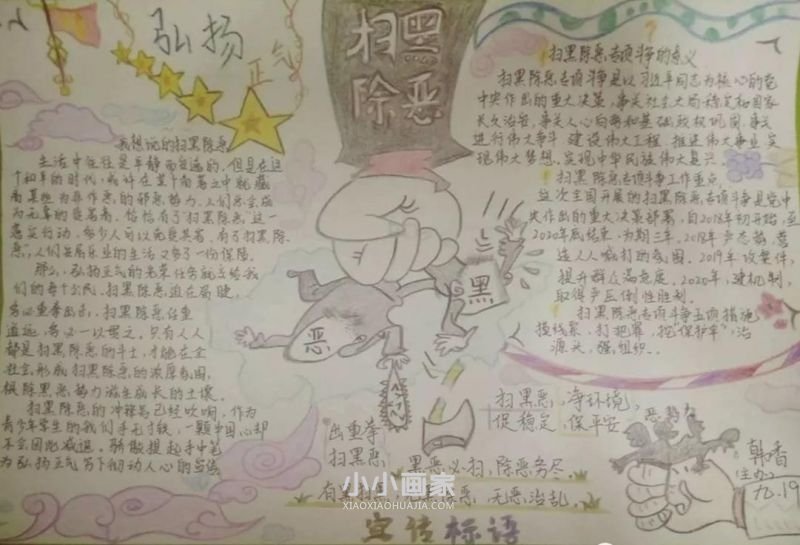 弘扬
正气
扫黑
除恶
我想说的扫黑除恶
生活中往往是平静而安逸的，但是在这
个和平的时代，或许在某个角落之中就藏
着某些为非作恶的邪恶势力，人们总会成
为无辜的受害者，恰恰有了"扫黑除恶"这一
惠民行动，多少人可以免受其害，有了"扫黑除
恶"，人们安居乐业的生活又多了一份保障。
那么，弘扬正气的光荣任务就交给我
们的每个公民，扫黑除恶迫在眉睫，
务必重拳出击，扫黑除恶任重
道远，务必一以贯之，只有人人
都是扫黑除恶的斗士，才能在全
社会形成扫黑除恶的浓厚氛围，
根除黑恶势力滋生成长的土壤。
扫黑除恶的冲锋号已经吹响，作为
青少年学生的我们手无寸铁，一颗中国心却
不会因此减退，骄傲提起手中笔
为弘扬正气写下彻动人心的宣言
扫黑除恶专项斗争的意义
扫黑除恶专项斗争是以习近平同志为核心的党
中央作出的重大决策，事关社会大局稳定和国家
长久治安，事关人心向背和基础政权巩固，事关
进行伟大斗争 建设伟大工程、推进伟大事业，实
现伟大梦想，实现中华民族伟大复兴
扫黑除恶专项斗争工作重点
这次全国开展的扫黑除恶专项斗争是党中
央作出的重大决策部署，自2018年初开始，至
2020年底结束，为期三年。2018年声势，营
造人人喊打的氛围。2019年攻案件，
提升群众满意度。2020年，建机制，
取得声压倒性胜利。
扫黑除恶专项斗争五项措施
摸线索，打犯罪，挖"保护伞"，治
源头，强组织。
恶
黑
扫黑恶，净环境，
促稳定，保平安
恶势力
出重拳
扫黑恶
黑恶必扫，除恶务尽
有黑扫黑，无黑除恶，无恶治乱。
宣传标语
韩香
(主办)
九.19
小小画家
XIAOXIAOHUAJIA.COM